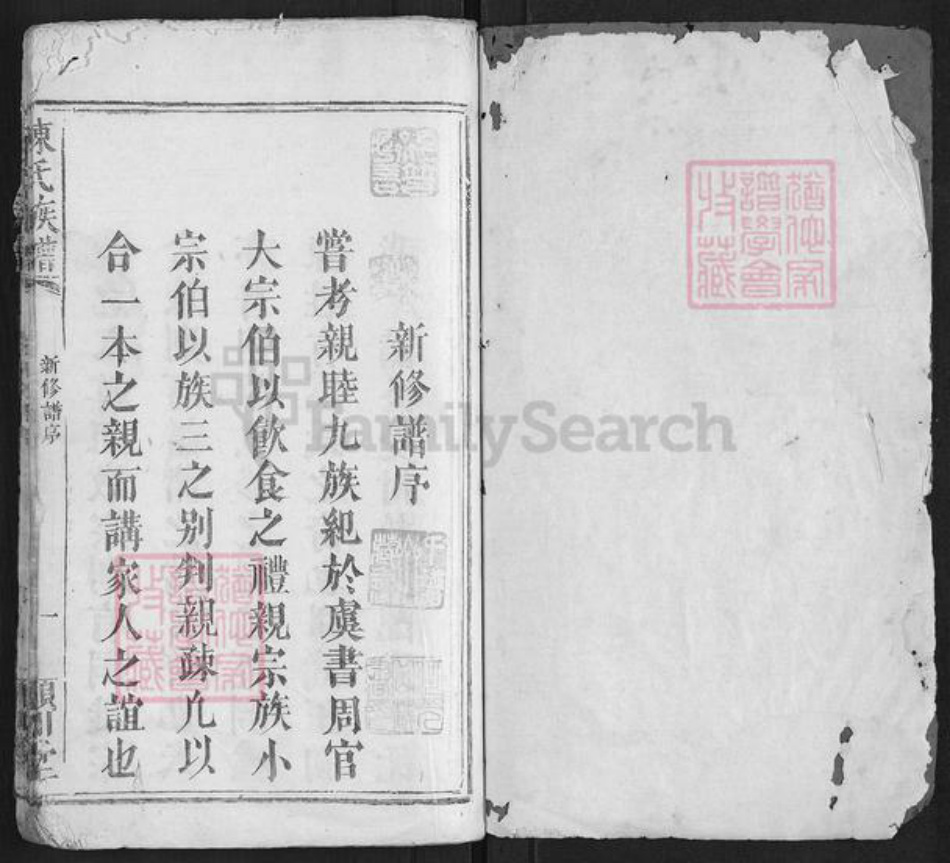 新修譜序
嘗考親睦九族紀於虞書周官
大宗伯以飲食之禮親宗族小
宗伯以族三之别判親疎凢以
合一本之親而講家人之誼也
陳氏族譜
新修譜序
一
頴川堂
譜學會
收藏
FamilySearch